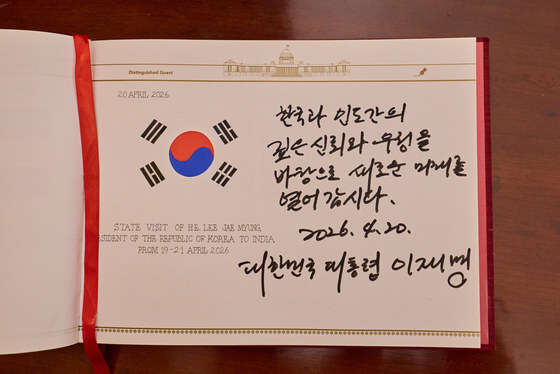 Distinguished Guest
20 APRIL 2026
한국과 인도간의
깊은 신뢰와 우정을
바탕으로 새로운 미래를
열어 갑시다.
2026. 4. 20.
대한민국 대통령 이재명
STATE VISIT OF H.E. LEE JAE MYUNG
RESIDENT OF THE REPUBLIC OF KOREA TO INDIA
FROM 19-21 APRIL 2026